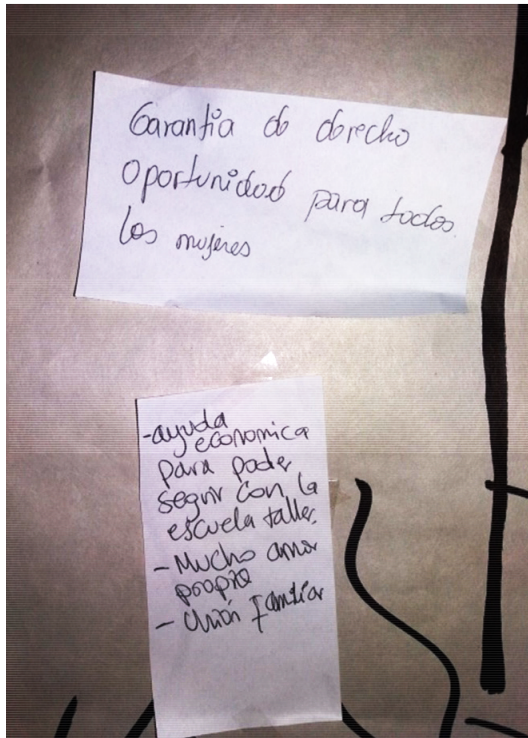 Garantia de derecho
Oportunidad para todas
las mujeres
-ayuda
economica
para poder
seguir con la
escuela taller.
- Mucho amor
propio
- Unión familiar